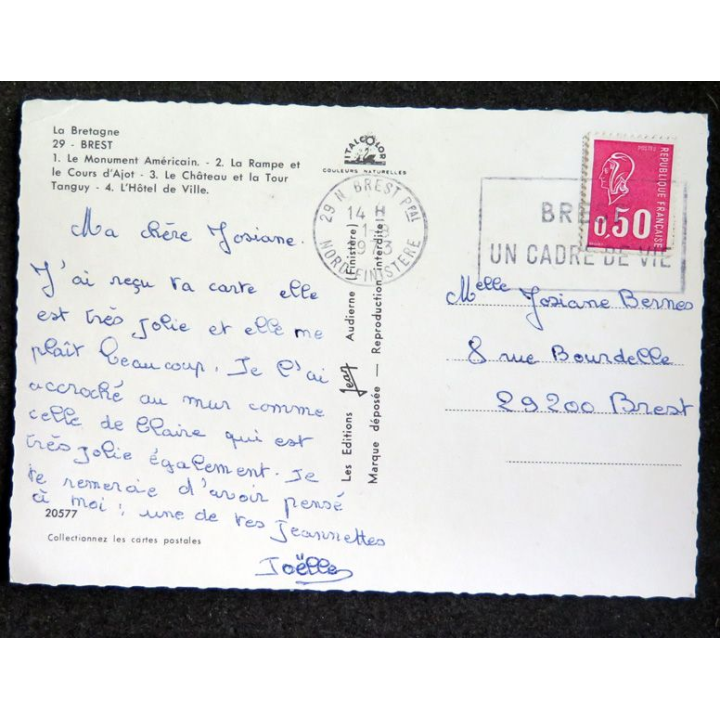 La Bretagne
29 - BREST
1. Le Monument Américain. - 2. La Rampe et
le Cours d'Ajot - 3. Le Château et la Tour
Tanguy - 4. L'Hôtel de Ville.
ITALCOLOR
COULEURS NATURELLES
29 N BREST Pal
14 H
1973
NORD-FINISTERE
UN CADRE DE VIE
POSTES
REPUBLIQUE FRANÇAISE
0,50
Ma chère Josiane.
J'ai reçu ta carte elle
est très jolie et elle me
plaît beaucoup. Je l'ai
accroché au mur comme
celle de Claire qui est
très jolie également. Je
te remercie d'avoir pensé
à moi : une de tes Jeannettes
Joëlle
20577
Collectionnez les cartes postales
Les Editions Jean Audierne (Finistère)
Marque déposée — Reproduction interdite
Melle Josiane Bernes
8 rue Bourdelle
29200 Brest